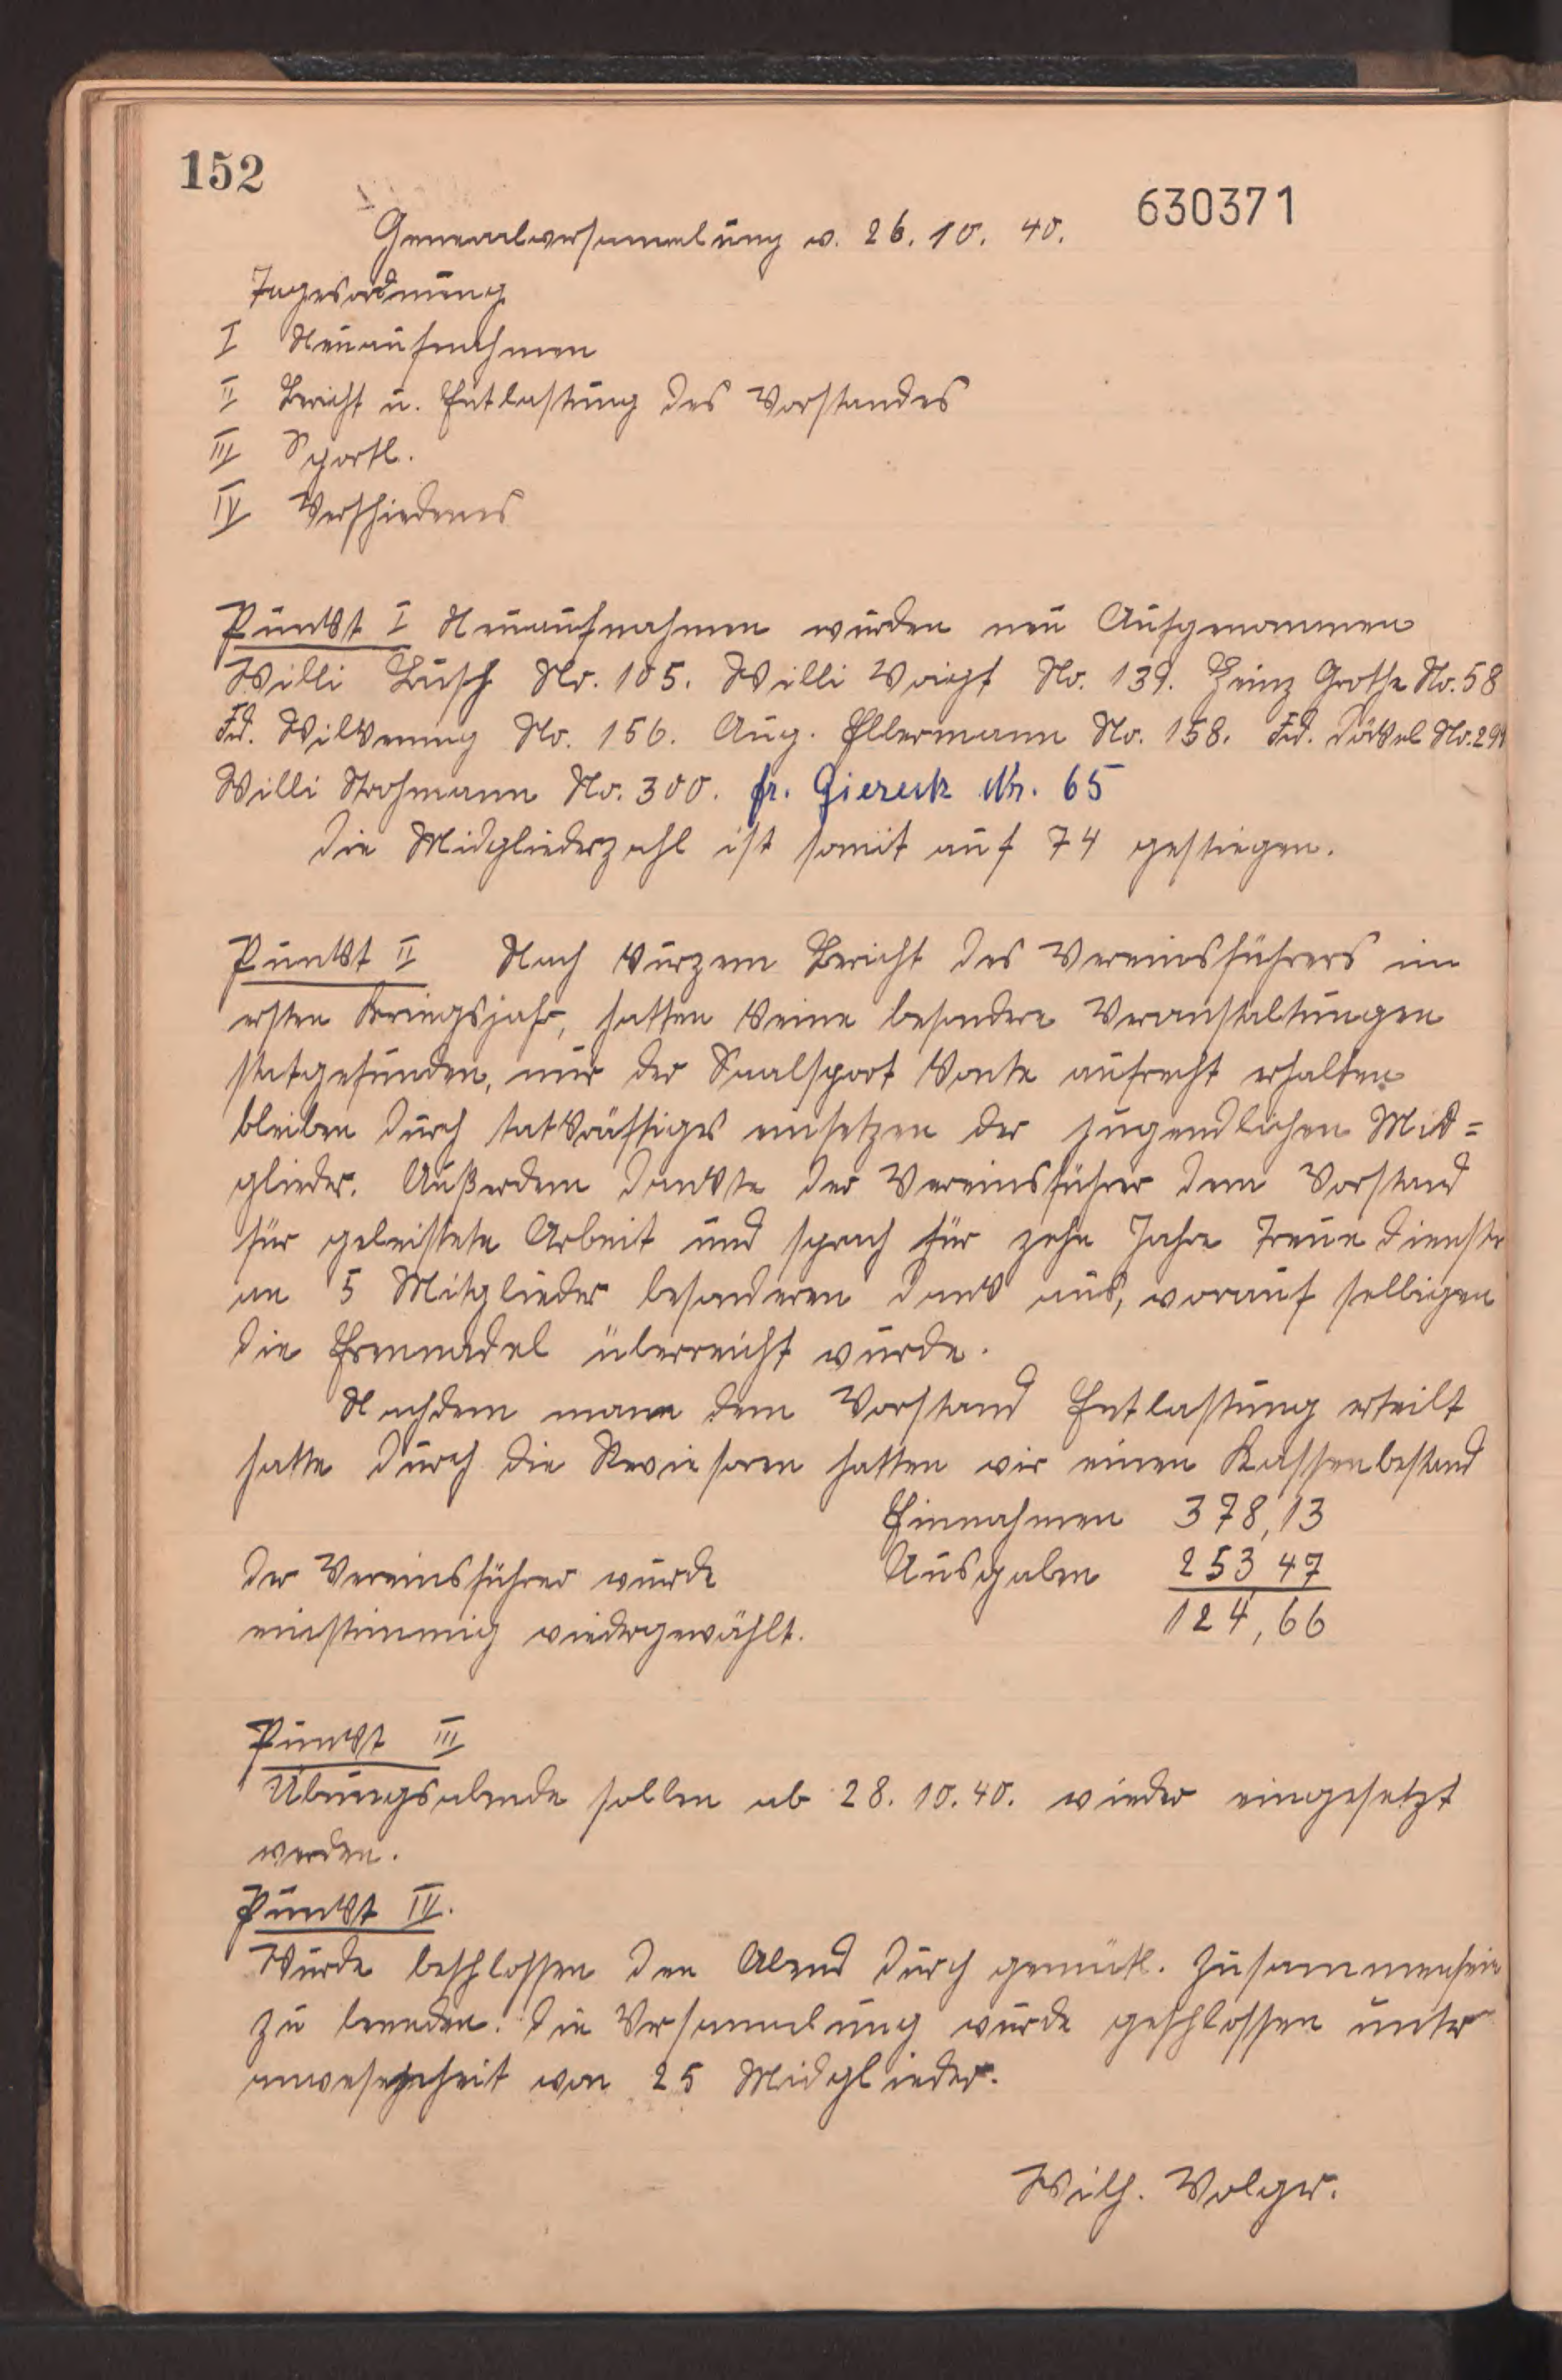 152
630371
Generalversammlung v. 26. 10. 40.
Tagesordnung
I Neuaufnahmen
II Bericht u. Entlastung des Vorstandes
III Sportl.
IV Verschiedenes
Punkt I Neuaufnahmen wurden neu Aufgenommen
Willi Busch No. 105. Willi Voigt No. 139. Heinz Grothe No. 58
Fd. Wilkening No. 156. Aug. Ellermann No. 158. Fd. Dökel No. 299
Willi Strohmann No. 300. fr. Giereck Nr. 65
Die Midgliederzahl ist somit auf 74 gestiegen.
Punkt II Nach kurzem Bericht des Vereinsführers im
ersten Kriegsjahr, hatten keine besondere Veranstaltungen
statgefunden, nur der Saalsport konte aufrecht erhalten
bleiben durch tatkräftiges einsetzen der jugendlichen Mid=
glieder. Außerdem dankte der Vereinsführer dem Vorstand
für geleistete Arbeit und sprach für zehn Jahre Treue dienste
an 5 Mitglieder besonderen dank aus, worauf selbigen
die Ehrennadel überreicht wurde.
Nachdem mann dem Vorstand Entlastung erteilt
hatte durch die Reviesoren hatten wir einen Kassenbestand
Einnahmen 378,13
Der Vereinsführer wurde Ausgaben 253 47
einstimmig wiedergewählt. 124,66
Punkt III
Übungsabende sollen ab 28. 10. 40. wieder eingesetzt
werden.
Punkt IV.
Wurde beschlossen den Abend durch gemütl. Zusammensein
zu beenden. Die Versammlung wurde geschlossen unter
anwesenheit von 25 Midglieder.
Wilh. Volger.